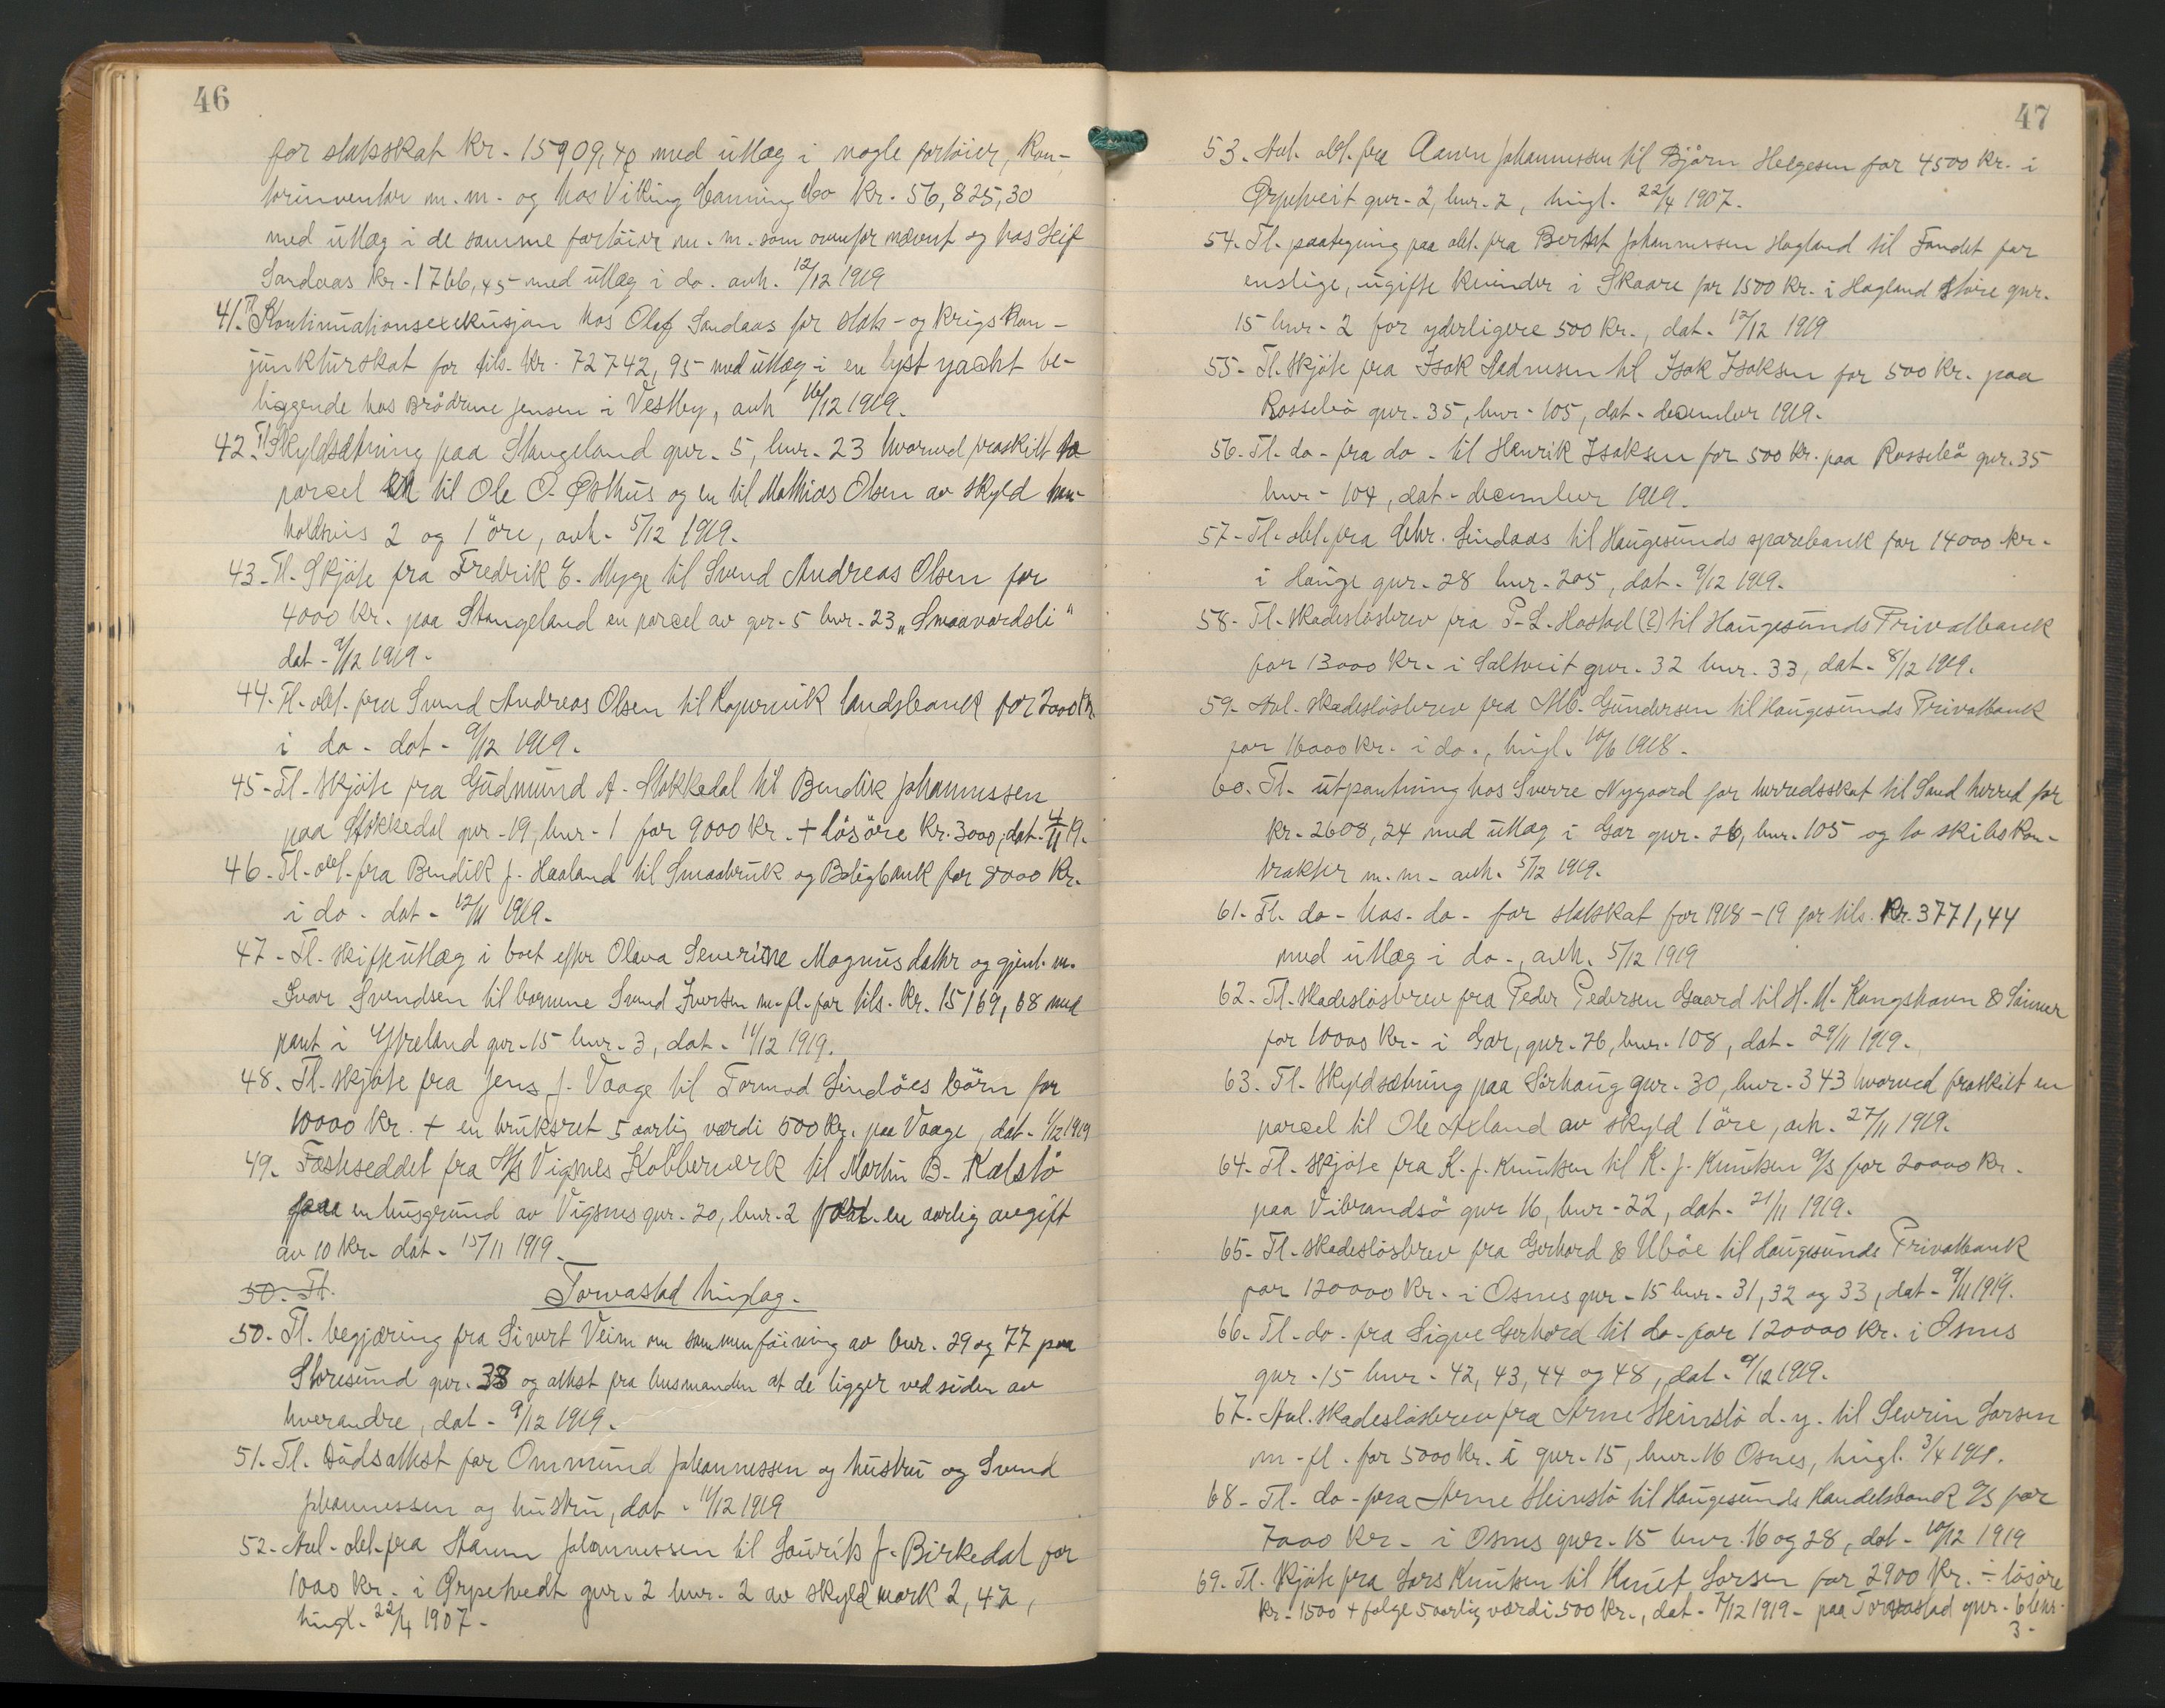 46
for statsskat kr. 15909,40 med utlæg i nogle fartöier, kon-
torinventar m.m. og hos Viking Canning Co kr. 56,825,30
med utlæg i de samme fartöier m.m. som ovenfor nævnt og hos Leif
Sandaas kr. 1766,45 med utlæg i do. avh. 12/12 1919
41. Tl. Kontinuationsexekusjon hos Olaf Sandaas for stats- og krigskon-
junkturskat for tils. kr. 72742,95 med utlæg i en lyst yacht be-
liggende hos Brödrene Jensen i Vestby, avh 16/12 1919.
42. Tl. Skyldsætning paa Stangeland gnr. 5, bnr. 23 hvorved fraskilt to
parcel en til Ole O. Østhus og en til Mathias Olsen av skyld hen-
holdsvis 2 og 1 öre, avh. 5/12 1919.
43. Tl. Skjöte fra Fredrik E. Myge til Svend Andreas Olsen for
4000 kr. paa Stangeland en parcel av gnr. 5 bnr. 23 „Smaavardsli"
dat. 9/12 1919.
44. Tl. obl. fra Svend Andreas Olsen til Kopervik landsbank for 2000 kr.
i do. dat. 9/12 1919.
45. Tl. skjöte fra Gudmund A. Stokkedal til Bendik Johannessen
paa Stokkedal gnr. 19, bnr. 1 for 9000 kr. + lösöre kr. 3000, dat. 4/11 19.
46. Tl. obl. fra Bendik J. Haaland til Smaabruk og Boligbank for 8000 kr.
i do. dat. 12/11 1919.
47. Tl. skifteutlæg i boet efter Olava Severine Magnusdatter og gjenl. m.
Ivar Svendsen til barnene Svend Iversen m.fl. for tils. kr. 15169,68 med
pant i Ytreland gnr. 15 bnr. 3, dat. 11/12 1919.
48. Tl. skjöte fra Jens J. Vaage til Tormod Lindöes börn for
10000 kr. + en bruksret 5 aarlig værdi 500 kr. paa Vaage, dat. 1/12 1919
49. Fæsteseddel fra A/S Vigsnes Kobberverk til Martin B. Kalstö
paa en husgrund av Vigsnes gnr. 20, bnr. 2 en aarlig avgift
av 10 kr. dat. 15/11 1919.
50. Tl. Torvastad tinglag.
50. Tl. begjæring fra Sivert Veim om sammenföining av bnr. 29 og 77 paa
Storesund gnr. 33 og attest fra lensmanden at de ligger ved siden av
hverandre, dat. 9/12 1919.
51. Tl. Dödsattest for Ommund Johannessen og hustru og Svend
Johannessen og hustru, dat. 11/12 1919
52. Avl. obl. fra Johannessen til Lauritz J. Birkedal for
1000 kr. i Grytetvedt gnr. 2 bnr. 2 av skyld mark 2,42,
tingl. 22/4 1907.
47
53. Avl. obl. fra Johannessen til Björn Helgesen for 4500 kr. i
gnr. 2, bnr. 2, tingl. 22/4 1907.
54. Tl. paategning paa obl. fra Johannessen Hagland til Fondet for
enslige, ugifte kvinder i Skaare for 1500 kr. i Hagland store gnr.
15 bnr. 2 for yderligere 500 kr., dat. 12/12 1919
55. Tl. skjöte fra Isak til Isak Isaksen for 500 kr. paa
Rossebö gnr. 35, bnr. 105, dat. december 1919.
56. Tl. do. fra do. til Henrik Isaksen for 500 kr. paa Rossebö gnr. 35
bnr. 104, dat. december 1919.
57. Tl. obl. fra Chr. Lindaas til Haugesunds sparebank for 14000 kr.
i Hauge gnr. 28 bnr. 205, dat. 9/12 1919.
58. Tl. skadeslösbrev fra P. L. Hastad (?) til Haugesunds Privatbank
for 13000 kr. i Saltveit gnr. 32 bnr. 33, dat. 8/12 1919.
59. Avl. skadeslösbrev fra Gundersen til Haugesunds Privatbank
for 16000 kr. i do., tingl. 10/6 1918.
60. Tl. utpantning hos Sverre Nygaard for herredsskat til Sand herred for
kr. 2608,24 med utlæg i Gar gnr. 26, bnr. 105 og to skibskon-
trakter m.m. avh. 5/12 1919.
61. Tl. do. hos do. for statskat for 1918-19 for tils. kr. 3771,44
med utlæg i do., avh. 5/12 1919
62. Tl. skadeslösbrev fra Peder Pedersen Gaard til H. M. Kongshavn & Sönner
for 10000 kr. i Gar, gnr. 26, bnr. 108, dat. 29/11 1919.
63. Tl. Skyldsætning paa Sörhaug gnr. 30, bnr. 343 hvorved fraskilt en
parcel til Ole Axland av skyld 1 öre, avh. 27/11 1919.
64. Tl. skjöte fra K. J. Knutsen til K. J. Knutsen A/S for 20000 kr.
paa Vibrandsö gnr 16, bnr. 22, dat. 21/11 1919.
65. Tl. skadeslösbrev fra Gerhard & Uböe til Haugesunds Privatbank
for 120000 kr. i Osnes gnr. 15 bnr. 31, 32 og 33, dat. 9/11 1919.
66. Tl. do. fra Sigve Gerhard til do. for 120000 kr. i Osnes
gnr. 15 bnr. 42, 43, 44 og 48, dat. 9/12 1919.
67. Avl. skadeslösbrev fra Arne Steinslö d.y. til Sevrin Larsen
m.fl. for 5000 kr. i gnr. 15, bnr. 16 Osnes, tingl. 3/4
68. Tl. do. fra Arne Steinslö til Haugesunds Handelsbank A/S for
7000 kr. i Osnes gnr. 15 bnr. 16 og 28, dat. 10/12 1919
69. Tl. skjöte fra Lars Knutsen til Knut Larsen for 2900 kr. ÷ lösöre
kr. 1500 + følge 5 aarlig værdi 500 kr., dat. 7/12 1919. paa Torvastad gnr. 6 bnr.
3.